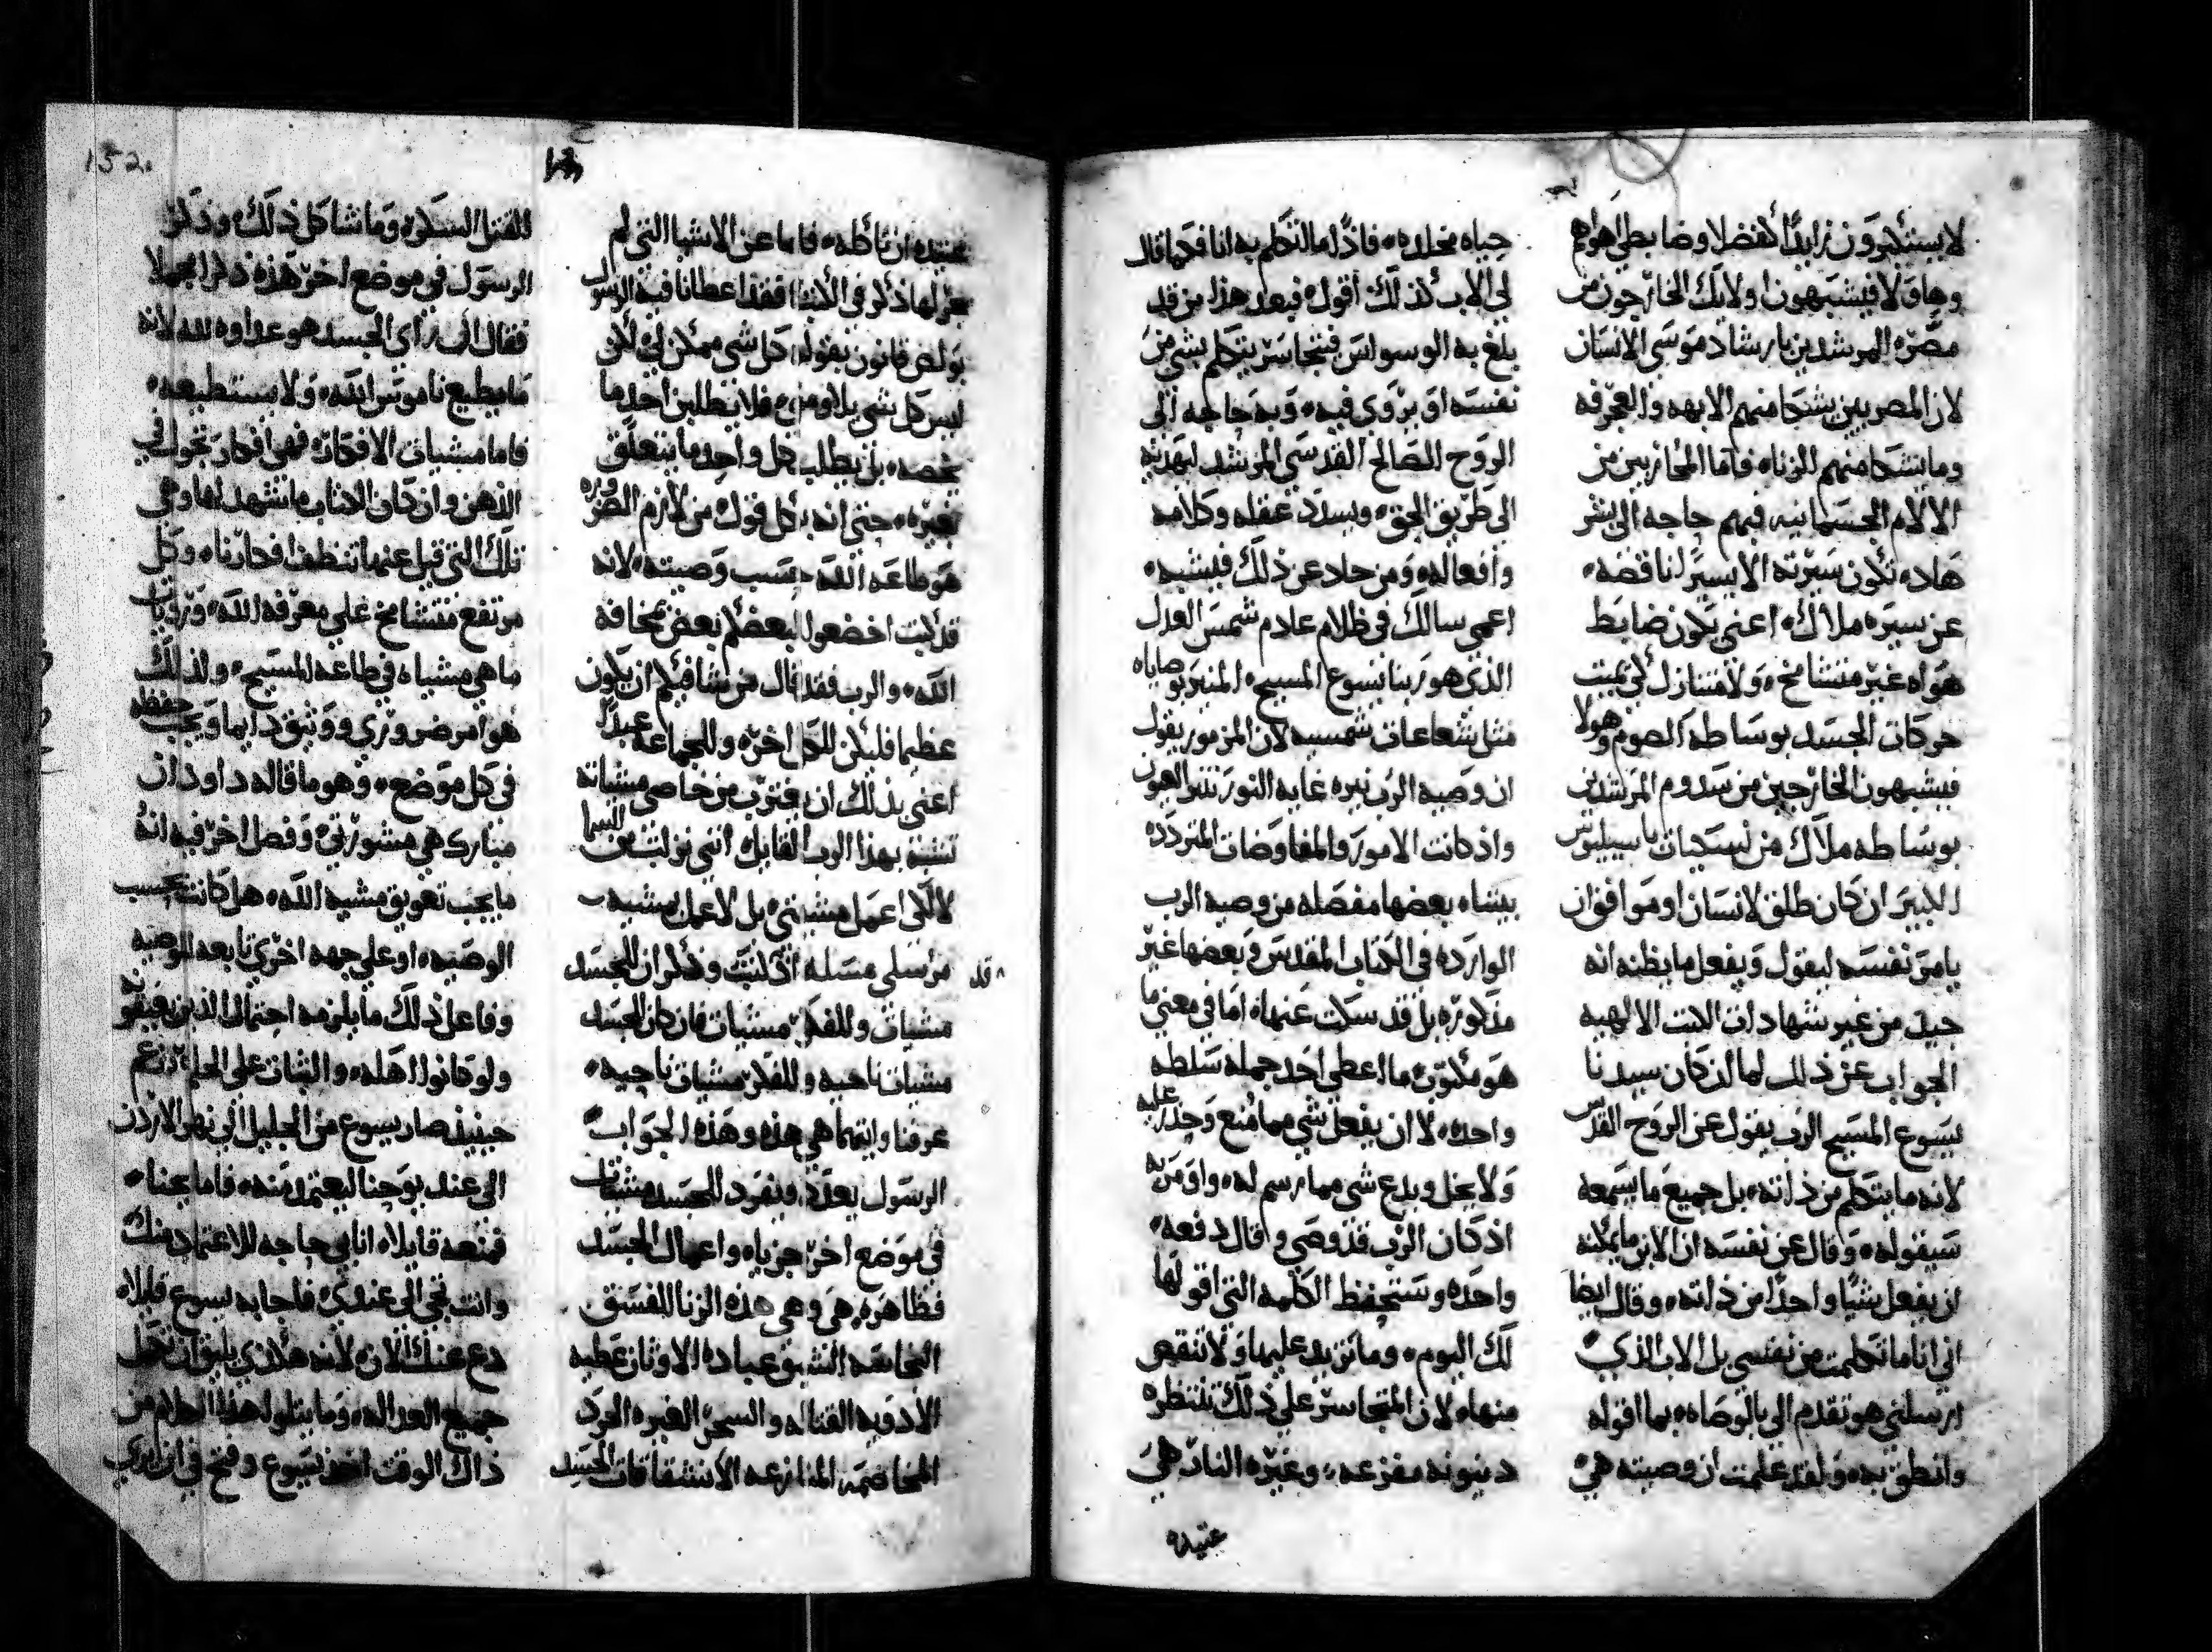 لا يستكبرون زايدًا كفضلا وضابطي اهواهم
وهاولا فيشبهون اولايك الخارجون من
مصر المرشدين بارشاد موسى الانسان
لان المصريين يشكا منهم الابهه والعجرفه
وما يشكا منهم الزناه فاما المحاربين من
الالام الجسمانيه فبهم حاجه الى بشر
هاد تكون سيرته الا يسيرًا ناقصه
عن سيره ملاك اعني يكون ضابط
هواه غير متشامخ ولا متنازل لكي يميت
حركات الجسد بوساطه الصوم وهولا
فيشبهون الخارجين من سدوم المرشدين
بوساطه ملاك من نسكيات باسيليوس
الكبير ان كان طلق لانسان او موافق ان
يامر نفسه ليقول ويفعل ما يظنه انه
جيد من غير شهادات الكتب الالهيه
الجواب عن ذلك لما ان كان سيدنا
ليسوع المسيح الرب يقول عن الروح القدس
لانه ما يتكلم من ذاته بل جميع ما يسمعه
سيقوله وقال عن نفسه ان الابن ما يمكنه
ان يفعل شيًا واحدًا من ذاته وقال ايضا
اني انا ما تكلمت من نفسي بل الاب الذي
ارسلني هو تقدم الي بالوصاه بما اقوله
وانطق به ولقد علمت ان وصيته هي
حياه مخلده فاذًا ما اتكلم به انا فكما قال
لي الاب كذلك اقول فبعد هذا من قد
بلغ به الوسواس فيتجاسر يتكلم بشي من
نفسه او يروي فيه وبه حاجه الى
الروح الصالح القدسي المرشد ليهديه
الى طريق الحق ويسدد عقله وكلامه
وافعاله ومن حاد عن ذلك فيشبه
اعمى سالك في ظلام عادم شمس العدل
الذي هو ربنا يسوع المسيح المنير بوصاياه
مثل شعاعات شمسيه لان المزمور يقول
ان وصيه الرب نيره غايه النور تنير العيون
واذ كانت الامور والمفاوضات المتردده
بيننا بعضها مفصله من وصيه الرب
الوارده في الكتاب المقدس وبعضها غير
مذكوره بل قد سكت عنها اما في معنى ما
هو مكتوب ما اعطي احد جمله سلطه
واحده لا ان يفعل شي مما منع وحذر عليه
ولا يخل ويدع شي مما رسم له وامر به
اذ كان الرب قد وصى وقال دفعه
واحده وستحفظ الكلمه التي اقولها
لك اليوم وما تزيد عليها ولا تنقص
منها لان المتجاسر على ذلك تنتظره
دينونه مفزعه وغيره النار هي
عتيده
152
عتيده ان تاكله فاما عن الاشيا التي لم
يجر لها ذكر في الكتاب فقد اعطانا فيه الرسول
بولص قانون بقوله كل شي ممكن لي لكن
ليس كل شي يلاومني فلا يطلبن احد ما
يخصه بل يطلب كل واحد ما يتعلق
بغيره حتى انه بكل قول من لازم الضروره
هو طاعه الله بحسب وصيته لانه
قد كتب اخضعوا بعضكم لبعض بمخافة
الله والرب فقد قال من شا فيكم ان يكون
عظيما فليكن للكل اخرًا وللجماعه عبدًا
اعني بذلك ان يغترب من خاصي مشياته
تشبهًا بهذا الرب القايل انني نزلت من السما
لا لكي اعمل مشيتي بل لاعمل مشيه
من ارسلني مسله اذ كنت وذكر ان للجسد
قد
مشيات وللفكر مشيات فان كان للجسد
مشيات ناحيه وللفكر مشيات ناحيه
عرفنا وايهما هي هذه وهذه الجواب
الرسول يعدد ويفرد للجسد مشيات
في موضع اخر جزياه واعمال الجسد
فظاهره هي وهي هذه الزنا الفسق
النجاسه الشبق عباده الاوثان عطيه
الادويه القتاله والسحر الغيره الحرد
المخاصمه المنازعه الانشقاقات الحسد
القتل السكره وما شاكل ذلك وذكر
الرسول في موضع اخر هذه ذكرا مجملا
فقال ان راي الجسد هو عداوه لله لانه
ما يطيع ناموس الله ولا يستطيعه
فاما مشيات الافكار فهي افكار تجول في
الذهن وان كان الكتاب ما تشهد لها وهي
تلك التي قيل عنها تنظف افكارنا وكل
مرتفع متشامخ على معرفه الله ورويات
ما هي مشياه في طاعه المسيح ولذلك
هو امر ضروري ووثيق دايما ويجب حفظه
في كل موضع وهو ما قاله داود ان
مبارك هي مشورتي وفصل اخر فيه انه
ما يجب تعويق مشيه الله هل كانت بحسب
الوصيه او على جهه اخرى تابعه للوصيه
وفاعل ذلك ما يلزمه احتمال الذين يعيقونه
ولو كانوا اهله والثبات على الحكم اذ نعم
حينيذ صار يسوع من الجليل الى نهر الاردن
الى عند يوحنا ليعتمد منه فاما يوحنا
فمنعه قايلا انا بي حاجه للاعتماد منك
وانت تجي الى عندي فاجابه يسوع قايلا
دع عنك الان لانه هكذي يليق ان نكمل
جميع العداله وما يتلو هذا الكلام من
ذاك الوقت اخذ يسوع وفتح في ان يري